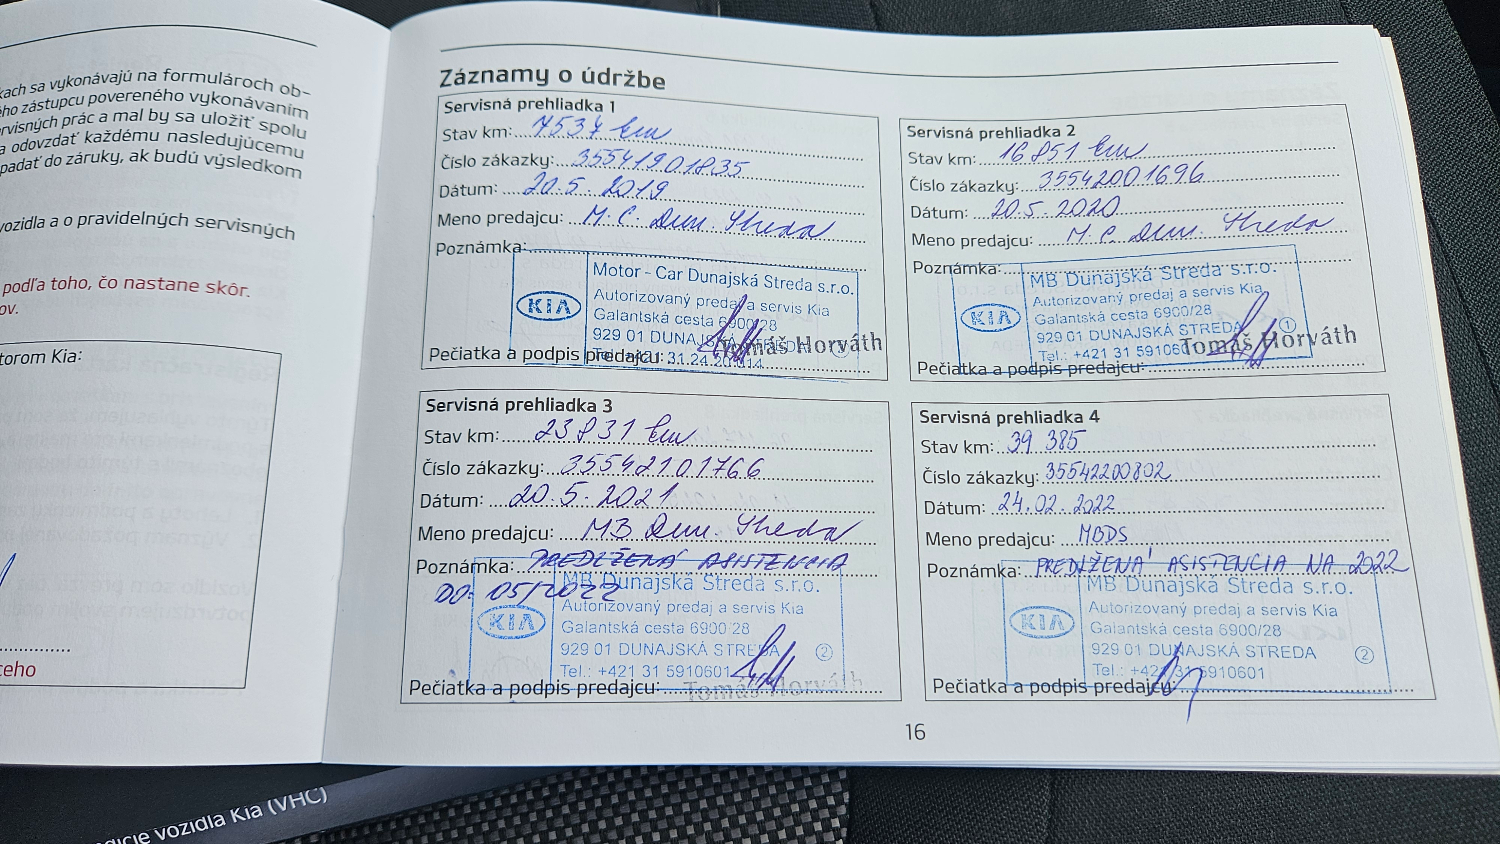 kach sa vykonávajú na formulároch ob-
ho zástupcu povereného vykonávaním
rvisných prác a mal by sa uložiť spolu
a odovzdať každému nasledujúcemu
padať do záruky, ak budú výsledkom
vozidla a o pravidelných servisných
podľa toho, čo nastane skôr.
ov.
torom Kia:
ceho
Záznamy o údržbe
Servisná prehliadka 1
Stav km: 7537 km
Číslo zákazky: 35541901835
Dátum: 20.5. 2019
Meno predajcu: M. C. Dun. Streda
Poznámka:
KIA
Motor - Car Dunajská Streda s.r.o.
Autorizovaný predaj a servis Kia
Galantská cesta 6900/28
929 01 DUNAJSKÁ STREDA
Tomáš Horváth
Pečiatka a podpis predajcu:
Servisná prehliadka 2
Stav km: 16851 km
Číslo zákazky: 35542001696
Dátum: 20.5.2020
Meno predajcu: M.C. Dun. Streda
Poznámka:
KIA
MB Dunajská Streda s.r.o.
Autorizovaný predaj a servis Kia
Galantská cesta 6900/28
929 01 DUNAJSKÁ STREDA 1
Tel.: +421 31 591060
Tomáš Horváth
Pečiatka a podpis predajcu:
Servisná prehliadka 3
Stav km: 23831 km
Číslo zákazky: 35542101766
Dátum: 20.5.2021
Meno predajcu: MB Dun. Streda
Poznámka: PREDLŽENÁ ASISTENCIA
DO 05/2022
KIA
MB Dunajská Streda s.r.o.
Autorizovaný predaj a servis Kia
Galantská cesta 6900/28
929 01 DUNAJSKÁ STREDA 2
Tel.: +421 31 5910601
Pečiatka a podpis predajcu: Tomáš Horváth
Servisná prehliadka 4
Stav km: 39 385
Číslo zákazky: 35542200802
Dátum: 24.02.2022
Meno predajcu: MBDS
Poznámka: PREDLŽENÁ ASISTENCIA NA 2022
KIA
MB Dunajská Streda s.r.o.
Autorizovaný predaj a servis Kia
Galantská cesta 6900/28
929 01 DUNAJSKÁ STREDA 2
Tel.: +421 31 5910601
Pečiatka a podpis predajcu:
16
vozidla Kia (VHC)